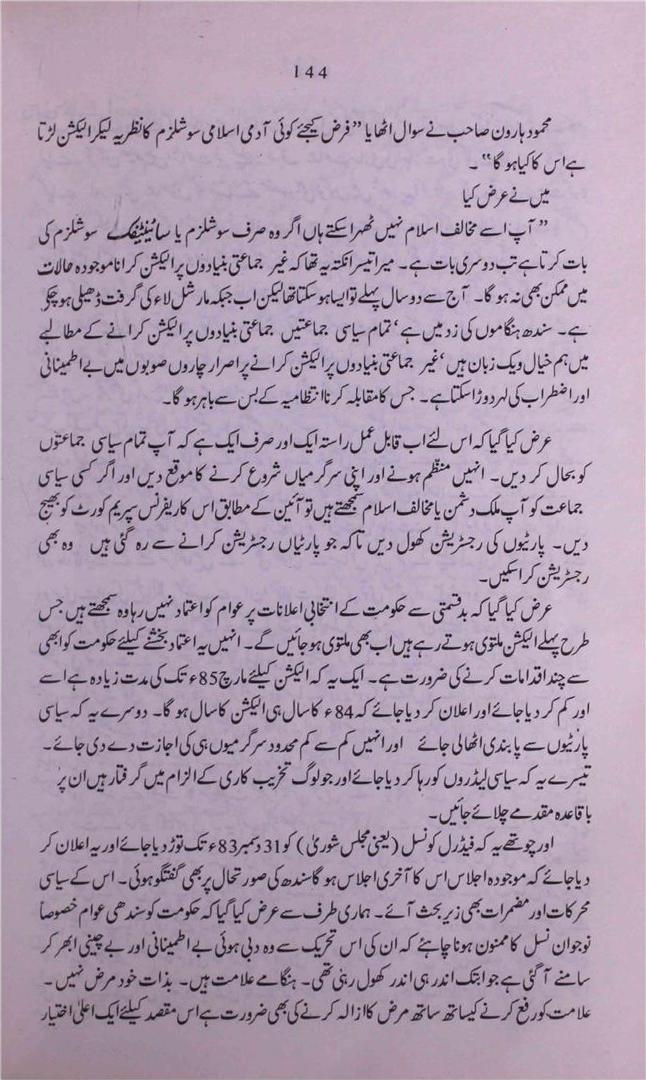 144
محمود ہارون صاحب نے سوال اٹھایا ”فرض کیجئے کوئی آدمی اسلامی سوشلزم کا نظریہ لیکر الیکشن لڑتا
ہے اس کا کیا ہو گا“۔
میں نے عرض کیا
”آپ اسے مخالف اسلام نہیں ٹھہرا سکتے ہاں اگر وہ صرف سوشلزم یا سائینٹیفک سوشلزم کی
بات کرتا ہے تب دوسری بات ہے۔ میرا تیسرا نکتہ یہ تھا کہ غیر جماعتی بنیادوں پر الیکشن کرانا موجودہ حالات
میں ممکن بھی نہ ہو گا۔ آج سے دو سال پہلے تو ایسا ہو سکتا تھا لیکن اب جبکہ مارشل لاء کی گرفت ڈھیلی ہو چکی
ہے۔ سندھ ہنگاموں کی زد میں ہے، تمام سیاسی جماعتیں جماعتی بنیادوں پر الیکشن کرانے کے مطالبے
میں ہم خیال و یک زبان ہیں، غیر جماعتی بنیادوں پر الیکشن کرانے پر اصرار چاروں صوبوں میں بے اطمینانی
اور اضطراب کی لہر دوڑا سکتا ہے۔ جس کا مقابلہ کرنا انتظامیہ کے بس سے باہر ہو گا۔
عرض کیا گیا کہ اس لئے اب قابل عمل راستہ ایک اور صرف ایک ہے کہ آپ تمام سیاسی جماعتوں
کو بحال کر دیں۔ انہیں منظّم ہونے اور اپنی سرگرمیاں شروع کرنے کا موقع دیں اور اگر کسی سیاسی
جماعت کو آپ ملک دشمن یا مخالف اسلام سمجھتے ہیں تو آئین کے مطابق اس کا ریفرنس سپریم کورٹ کو بھیج
دیں۔ پارٹیوں کی رجسٹریشن کھول دیں تاکہ جو پارٹیاں رجسٹریشن کرانے سے رہ گئی ہیں وہ بھی
رجسٹریشن کرا سکیں۔
عرض کیا گیا کہ بدقسمتی سے حکومت کے انتخابی اعلانات پر عوام کو اعتماد نہیں رہا وہ سمجھتے ہیں جس
طرح پہلے الیکشن ملتوی ہوتے رہے ہیں اب بھی ملتوی ہو جائیں گے۔ انہیں یہ اعتماد بخشنے کیلئے حکومت کو ابھی
سے چند اقدامات کرنے کی ضرورت ہے۔ ایک یہ کہ الیکشن کیلئے مارچ 85ء تک کی مدت زیادہ ہے اسے
اور کم کر دیا جائے اور اعلان کر دیا جائے کہ 84ء کا سال ہی الیکشن کا سال ہو گا۔ دوسرے یہ کہ سیاسی
پارٹیوں سے پابندی اٹھا لی جائے اور انہیں کم سے کم محدود سرگرمیوں ہی کی اجازت دے دی جائے۔
تیسرے یہ کہ سیاسی لیڈروں کو رہا کر دیا جائے اور جو لوگ تخریب کاری کے الزام میں گرفتار ہیں ان پر
باقاعدہ مقدمے چلائے جائیں۔
اور چوتھے یہ کہ فیڈرل کونسل (یعنی مجلس شوریٰ) کو 31 دسمبر 83ء تک توڑ دیا جائے اور یہ اعلان کر
دیا جائے کہ موجودہ اجلاس اس کا آخری اجلاس ہو گا سندھ کی صورتحال پر بھی گفتگو ہوئی۔ اس کے سیاسی
محرکات اور مضمرات بھی زیر بحث آئے۔ ہماری طرف سے عرض کیا گیا کہ حکومت کو سندھی عوام خصوصاً
نوجوان نسل کا ممنون ہونا چاہئے کہ ان کی اس تحریک سے وہ دبی ہوئی بے اطمینانی اور بے چینی ابھر کر
سامنے آ گئی ہے جو ابتک اندر ہی اندر کھول رہی تھی۔ ہنگامے علامت ہیں۔ بذات خود مرض نہیں۔
علامت کو رفع کرنے کیساتھ ساتھ مرض کا ازالہ کرنے کی بھی ضرورت ہے اس مقصد کیلئے ایک اعلیٰ اختیار